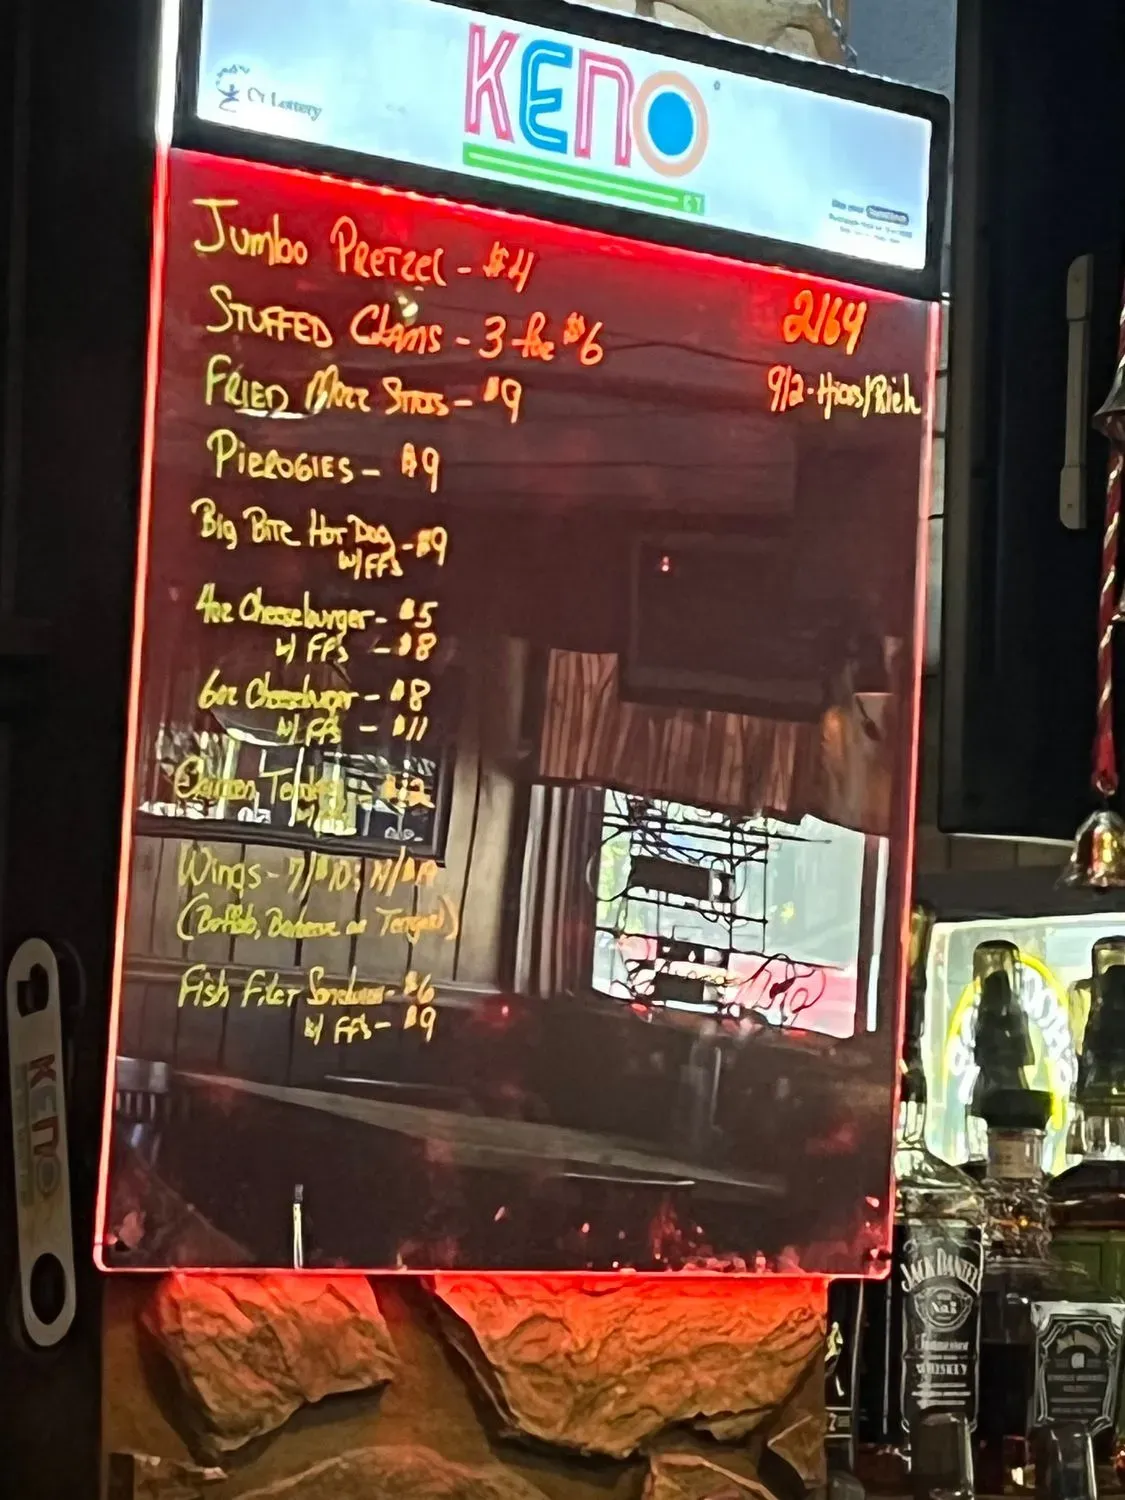 KENO
CT Lottery
CT
Jumbo PRETZEL - $4
2164
STUFFED Clams - 3 for $6
9/2 - Hicos/Rich
FRIED Mozz Sticks - $9
PIEROGIES - $9
Big Bite Hot Dog - $9
w/ FFs
4oz Cheeseburger - $5
w/ FF's - $8
6oz Cheeseburger - $8
w/ FF's - $11
Chicken Tenders - $12
Wings - 7/$10;
(Buffalo, Barbecue or Teriyaki)
Fish Filet Sandwich - $6
w/ FF's - $9
KENO
JACK DANIEL'S
No.7
Tennessee
WHISKEY